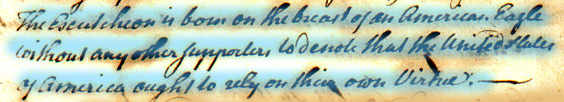 The Escutcheon is born on the breast of an American Eagle
without any other supporters to denote that the United States
of America ought to rely on their own Virtue. —